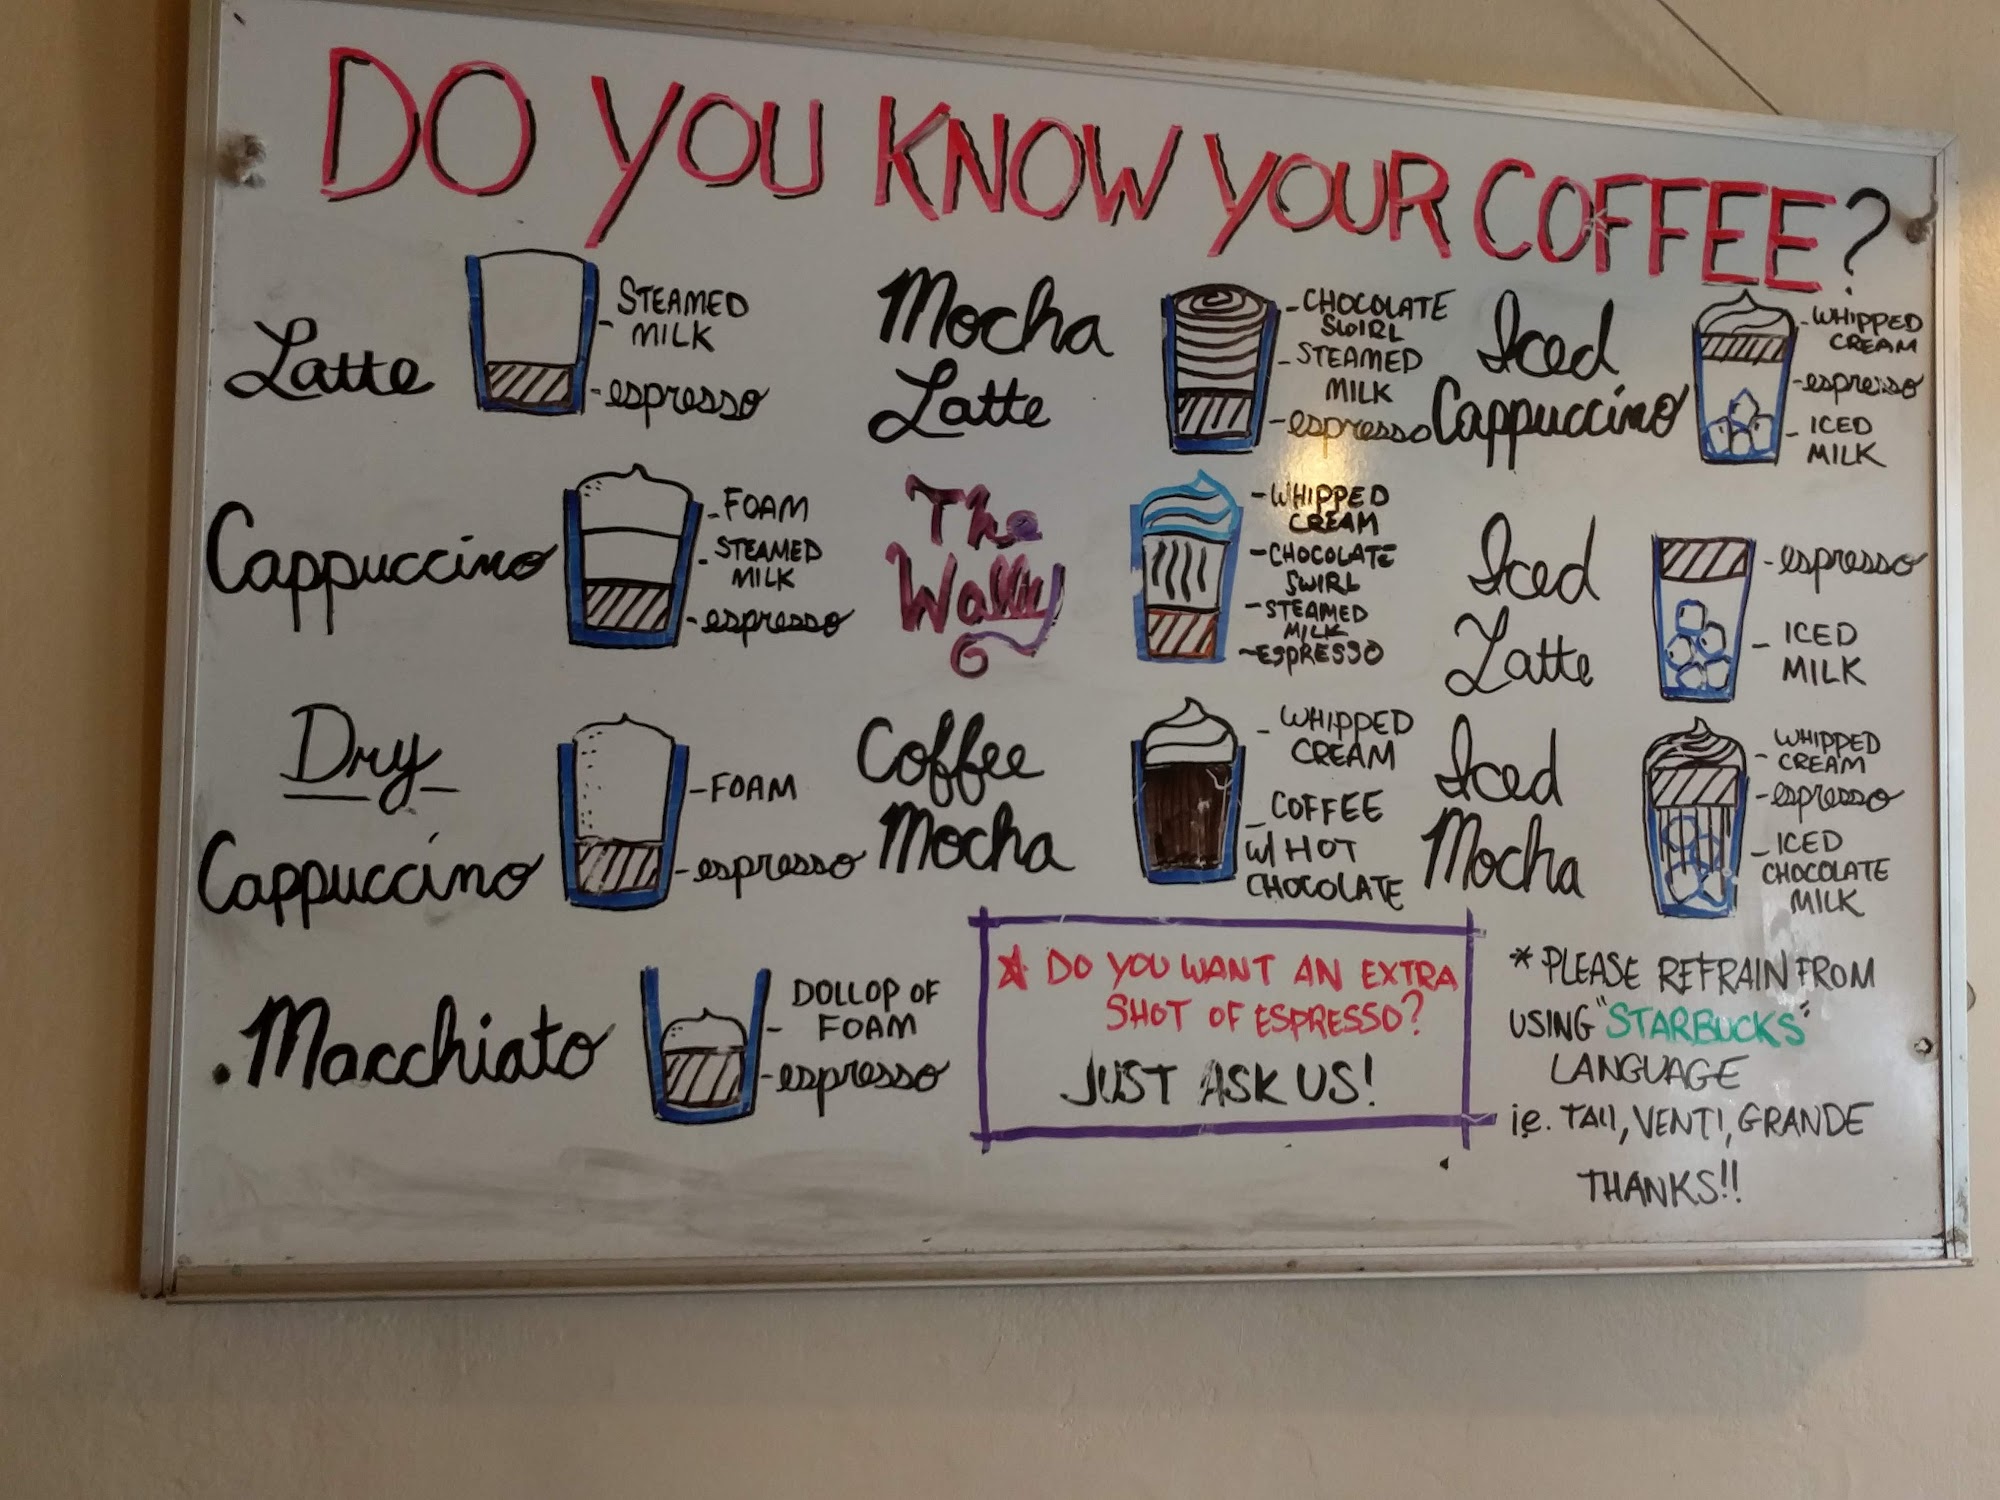 DO YOU KNOW YOUR COFFEE?
Latte
STEAMED
MILK
espresso
Cappuccino
FOAM
STEAMED
MILK
espresso
Dry
Cappuccino
FOAM
espresso
Macchiato
DOLLOP OF
FOAM
espresso
Mocha
Latte
CHOCOLATE
SWIRL
STEAMED
MILK
espresso
The
Wally
WHIPPED
CREAM
CHOCOLATE
SWIRL
STEAMED
MILK
ESPRESSO
Coffee
Mocha
WHIPPED
CREAM
COFFEE
w/ HOT
CHOCOLATE
Iced
Cappuccino
WHIPPED
CREAM
espresso
ICED
MILK
Iced
Latte
espresso
ICED
MILK
Iced
Mocha
WHIPPED
CREAM
espresso
ICED
CHOCOLATE
MILK
DO YOU WANT AN EXTRA
SHOT OF ESPRESSO?
JUST ASK US!
* PLEASE REFRAIN FROM
USING "STARBUCKS"
LANGUAGE
ie. TAll, VENTI, GRANDE
THANKS!!